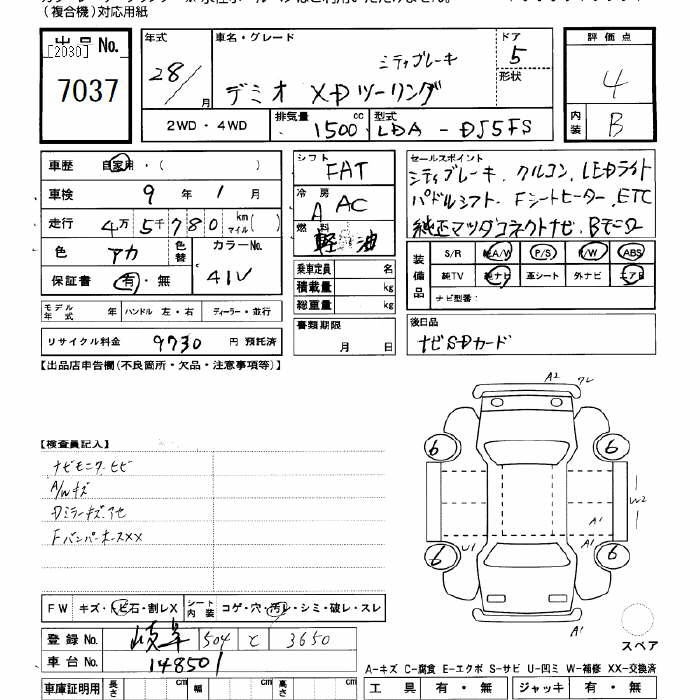 (複合機)対応用紙
出品No. [2030] 7037
年式 28/ 月
車名・グレード シティブレーキ
デミオ XDツーリング
ドア 5
形状
評価点 4
内装 B
2WD・4WD
排気量 1500 cc
型式 LDA-DJ5FS
車歴 自家用・( )
車検 9年 1月
走行 4万5千780 km マイル( )
色 アカ 色替 カラーNo. 41V
保証書 有・無
モデル年式 年 ハンドル 左・右 ディーラー・並行
リサイクル料金 9730 円 預託済
シフト FAT
冷房 A AC
燃料 軽油
乗車定員 名
積載量 kg
総重量 kg
書類期限 月 日
セールスポイント
シティブレーキ、クルコン、LEDライト
パドルシフト、Fシートヒーター、ETC
純正マツダコネクトナビ、Bモニター
装備品 S/R 純A/W P/S P/W ABS
純TV 純ナビ 革シート 外ナビ エアB
ナビ型番:
後日品
ナビSDカード
【出品店申告欄(不良箇所・欠品・注意事項等)】
【検査員記入】
ナビモニターヒビ
A/Wキズ
Dミラーキズアセ
FバンパーホースXX
A2
6 6
W2
A1
U1 A1
6 6
A1
スペア
FW キズ・トビ石・割レX シート内装 コゲ・穴・汚レ・シミ・破レ・スレ
登録No. 岐阜 504 と 3650
車台No. 148501
A-キズ C-腐食 E-エクボ S-サビ U-凹ミ W-補修 XX-交換済
車庫証明用 長さ cm 幅 cm 高さ cm
工具 有・無 ジャッキ 有・無